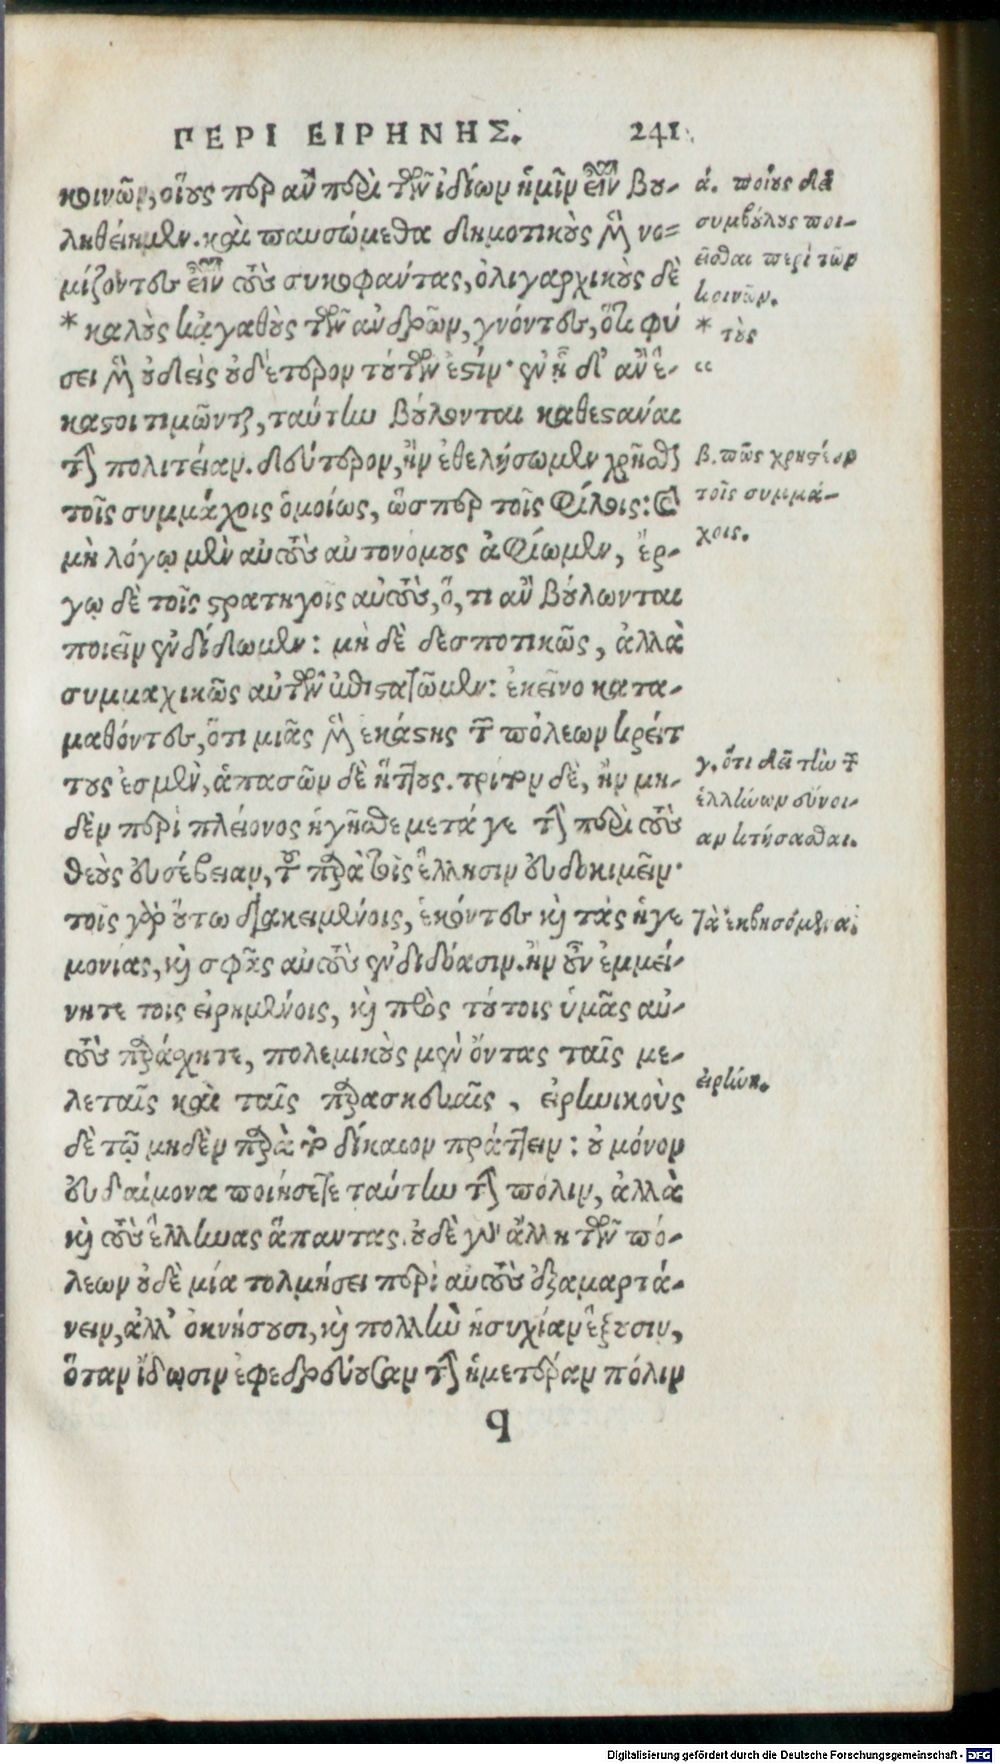 ΠΕΡΙ ΕΙΡΗΝΗΣ. 241
κοινῶν, οἵους περ ἂν περὶ τῶν ἰδίων ἡμῖν εἶναι βου-
ληθείημεν. καὶ παυσώμεθα δημοτικοὺς μὲν νο=
μίζοντες εἶναι τοὺς συκοφάντας, ὀλιγαρχικοὺς δὲ
* καλοὺς κᾀγαθοὺς τῶν ἀνδρῶν, γνόντες, ὅτι φύ
σει μὲν οὐδεὶς οὐδέτερον τούτων ἐστίν· ἐν ᾗ δ' ἂν ἕ-
καστοι τιμῶνται, ταύτην βούλονται καθεστάναι
τὴν πολιτείαν. δεύτερον, ἢν ἐθελήσωμεν χρῆσθαι
τοῖς συμμάχοις ὁμοίως, ὥσπερ τοῖς φίλοις: καὶ
μὴ λόγῳ μὲν αὐτοὺς αὐτονόμους ἀφίωμεν, ἔρ-
γῳ δὲ τοῖς στρατηγοῖς αὐτοὺς, ὅ, τι ἂν βούλωνται
ποιεῖν ἐνδίδωμεν: μὴ δὲ δεσποτικῶς, ἀλλὰ
συμμαχικῶς αὐτῶν ἐπιστατῶμεν: ἐκεῖνο κατα-
μαθόντες, ὅτι μιᾶς μὲν ἑκάστης τῶν πόλεων κρείτ
τους ἐσμὲν, ἁπασῶν δὲ ἥττους. τρίτον δὲ, ἢν μη-
δὲν περὶ πλείονος ἡγῆσθε μετά γε τὴν περὶ τοὺς
θεοὺς εὐσέβειαν, τοῦ παρὰ τοῖς ἕλλησιν εὐδοκιμεῖν·
τοῖς γὰρ οὕτω διακειμένοις, ἑκόντες καὶ τὰς ἡγε
μονίας, καὶ σφᾶς αὐτοὺς ἐνδιδόασιν. ἢν οὖν ἐμμεί-
νητε τοῖς εἰρημένοις, καὶ πρὸς τούτοις ὑμᾶς αὐ-
τοὺς παράσχητε, πολεμικοὺς μὲν ὄντας ταῖς με-
λεταῖς καὶ ταῖς παρασκευαῖς, εἰρηνικοὺς
δὲ τῷ μηδὲν παρὰ τὸ δίκαιον πράττειν: οὐ μόνον
εὐδαίμονα ποιήσετε ταύτην τὴν πόλιν, ἀλλὰ
καὶ τοὺς ἕλληνας ἅπαντας. οὐδὲ γὰρ ἄλλη τῶν πό-
λεων οὐδὲ μία τολμήσει περὶ αὐτοὺς ἐξαμαρτά-
νειν, ἀλλ' ὀκνήσουσι, καὶ πολλὴν ἡσυχίαν ἕξουσιν,
ὅταν ἴδωσιν ἐφεδρεύουσαν τὴν ἡμετέραν πόλιν
q
ά. ποίους δεῖ
συμβούλους ποι-
εῖσθαι περὶ τῶν
κοινῶν.
* τοὺς
“
β. πῶς χρηστέον
τοῖς συμμά-
χοις.
γ. ὅτι δεῖ τὴν τῶν
ἑλλήνων εὔνοι-
αν κτήσασθαι.
τὰ ἐκβησόμενα.
εἰρήνη.
Digitalisierung gefördert durch die Deutsche Forschungsgemeinschaft - DFG